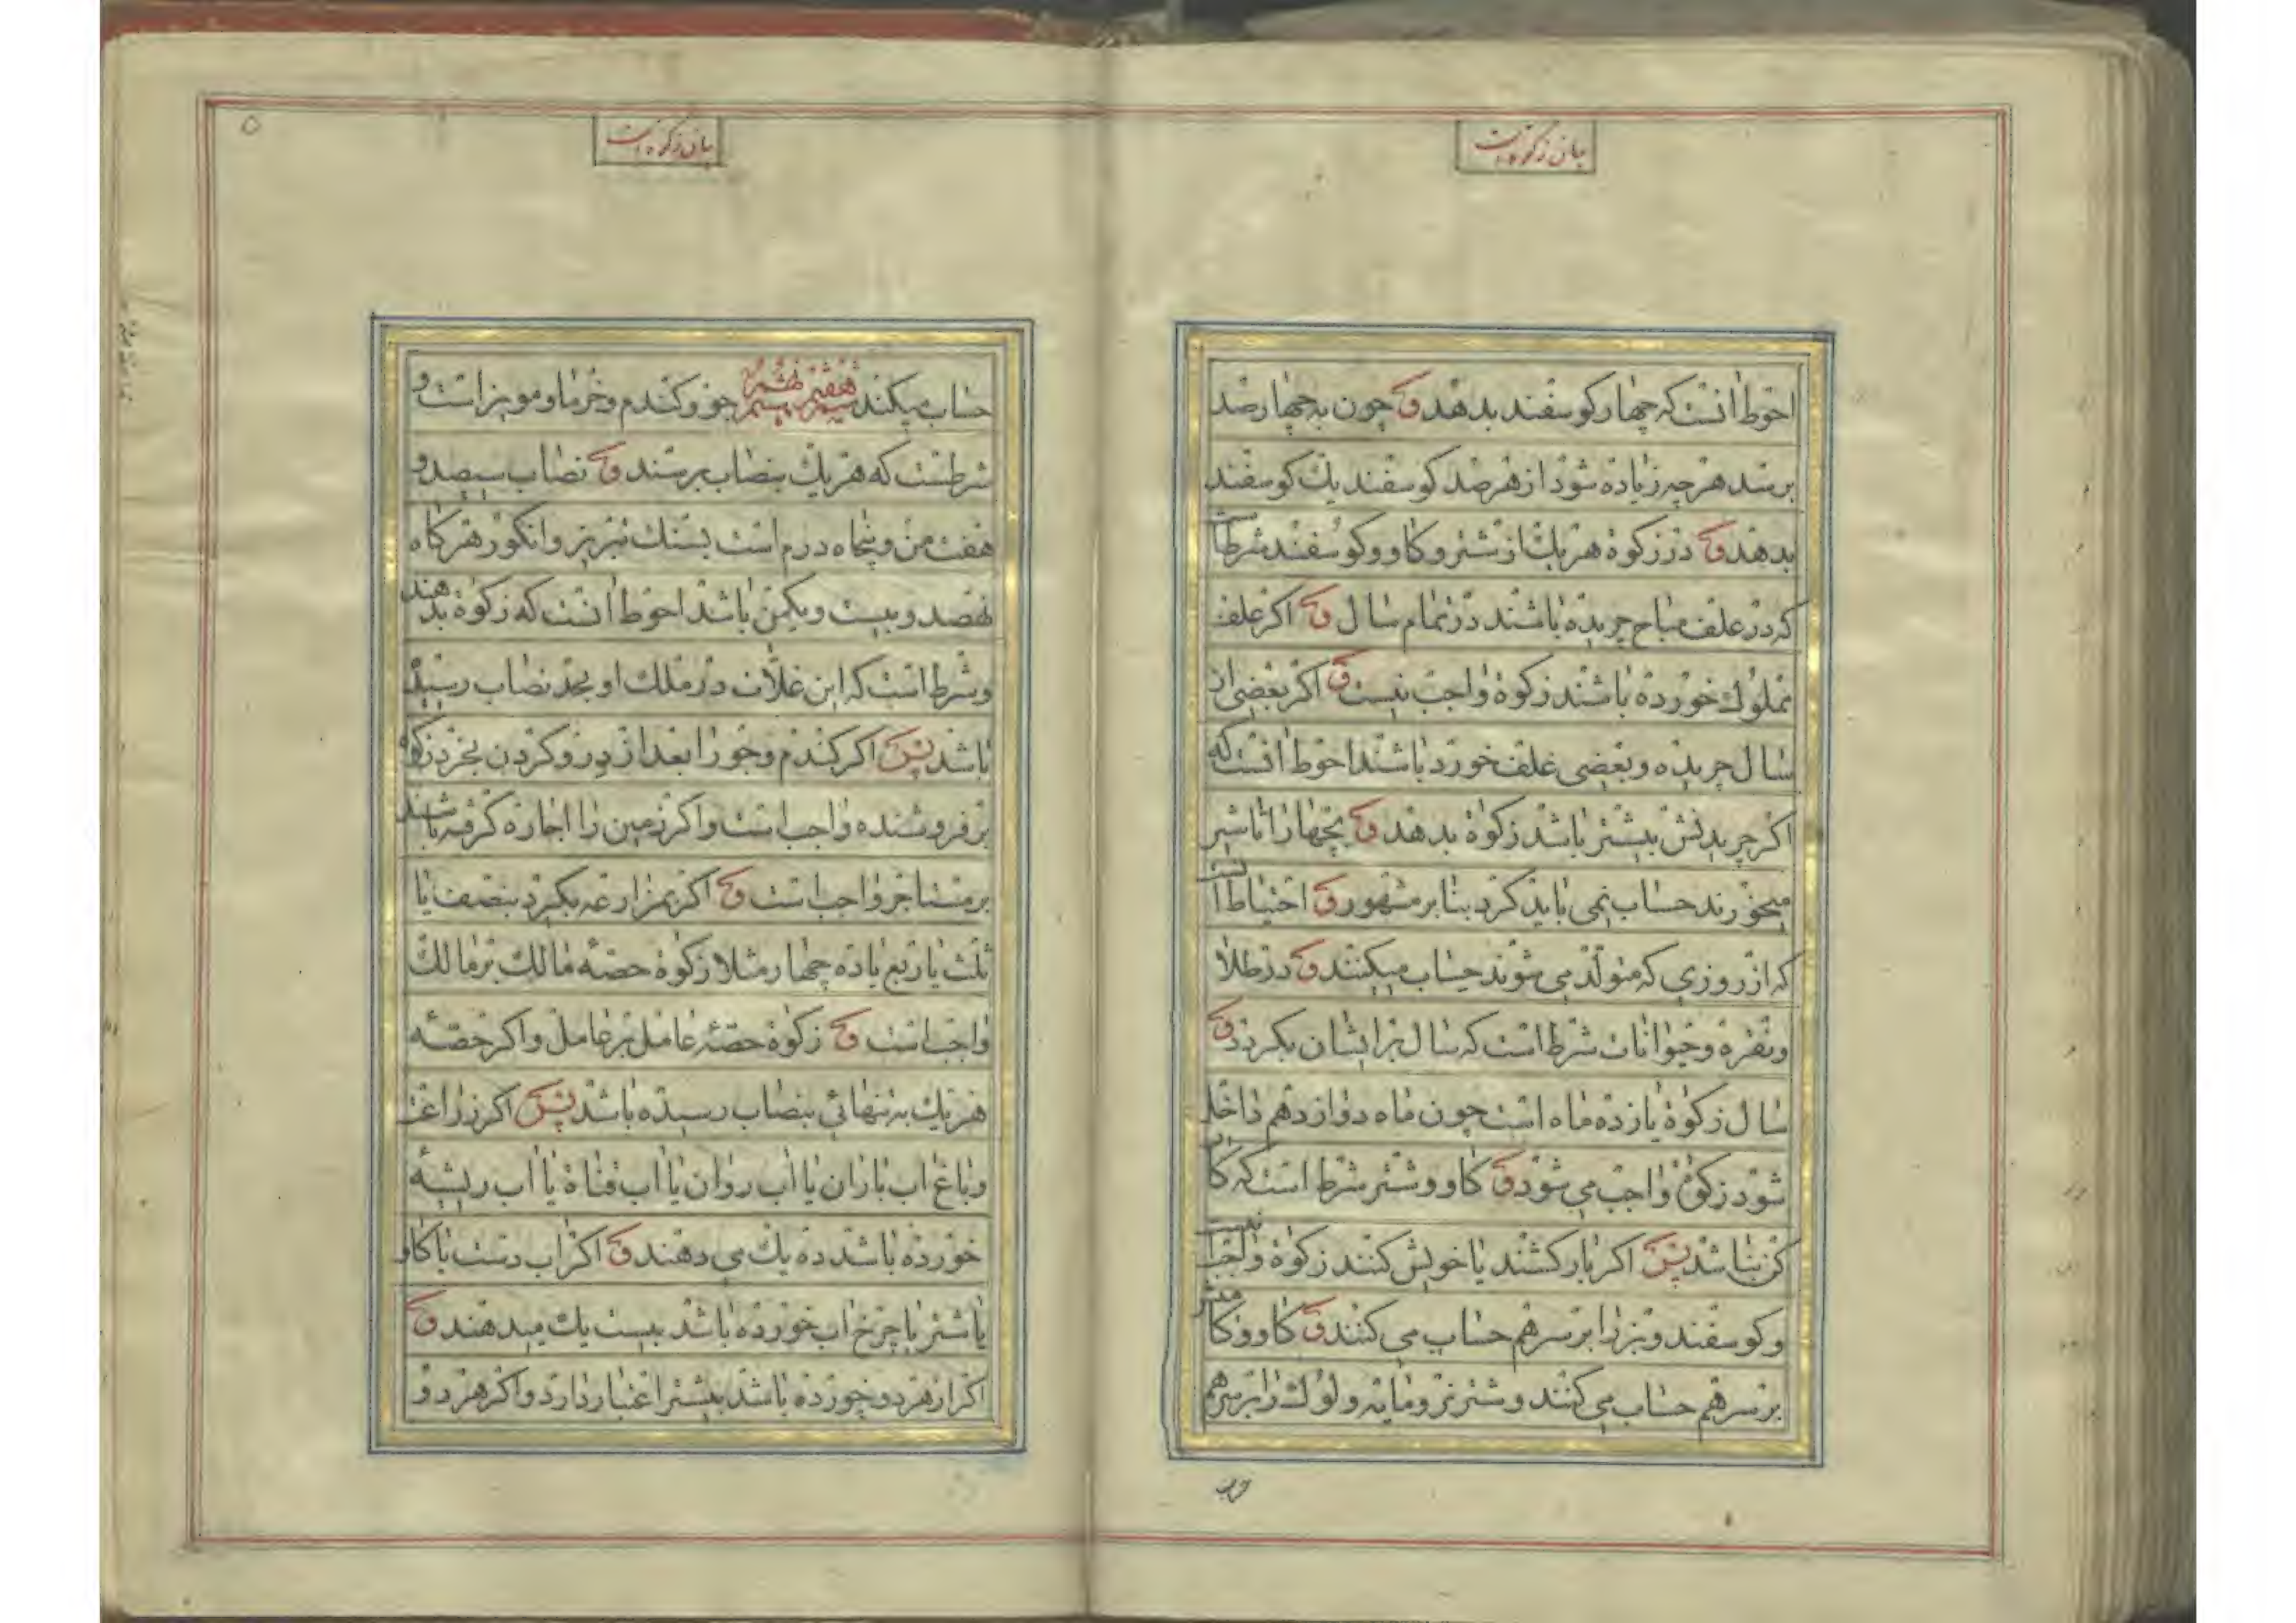 بیان زکوة است
احوط انست که چهار کوسفند بدهد و چون به چهارصد
برسد هر چه زیاده شود از هر صد کوسفند یك کوسفند
بدهد و در زکوة هر یك از شتر و کاو و کوسفند شرط است
که در علف مباح چریده باشند در تمام سال و اکر علف
مملوك خورده باشند زکوة واجب نیست و اکر بعضی از
سال چریده و بعضی علف خورد باشند احوط انست که
اکر چریدنش بیشتر باشد زکوة بدهد و بچها را تا شیر
میخورند حساب نمی باید کرد بنا بر مشهور و احتیاط انست
که از روزی که متولد می شوند حساب میکنند و در طلا
ونقره وحیوانات شرط است که سال بر ایشان بکردد و
سال زکوة یازده ماه است چون ماه دوازدهم داخل
شود زکوة واجب می شود و کاو و شتر شرط است که کار
کن نباشد پس اکر بار کشند یا خویش کنند زکوة واجب نیست
وکوسفند وبز را بر سر هم حساب می کنند و کاو و کامیش
بر سر هم حساب می کنند و شتر نر و مایه و لوك را بر سر هم
حساب
بیان زکوة است
۵
حساب میکند هفتم هشتم نهم دهم جو وکندم وخرما و مویز است و
شرطست که هر یك بنصاب برسند و نصاب سیصد و
هفت من و پنجاه درم است بسنك تبریز و انکور هر کاه
نهصد و بیست ویکمن باشد احوط انست که زکوة بدهند
وشرط است که این غلات در ملك او بحد نصاب رسیده
باشد پس اکر کندم وجو را بعد از درو کردن بخرد زکوة
بر فروشنده واجب است واکر زمین را اجاره کرفته باشند
بر مستاجر واجب است و اکر بمزارعه بکیرد بنصف یا
ثلث یا ربع یا ده چهار مثلا زکوة حصه مالك بر مالك
واجب است و زکوة حصهٔ عامل بر عامل واکر حصه
هر یك به تنهائی بنصاب رسیده باشد پس اکر زراعت
وباغ اب باران یا اب روان یا اب قناة یا اب ریشه
خورده باشد ده یك می دهند و اکر اب دست یا کاو
یا شتر یا چرخ اب خورده باشد بیست یك میدهند و
اکر از هر دو خورده باشد بیشتر اعتبار دارد واکر هر دو